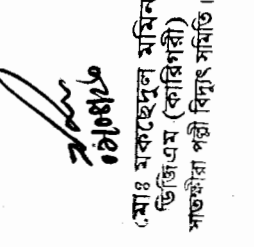 (মোঃ মকছেদুল মমিন
ডিজিএম (কারিগরী)
সাতক্ষীরা পল্লী বিদ্যুৎ সমিতি।